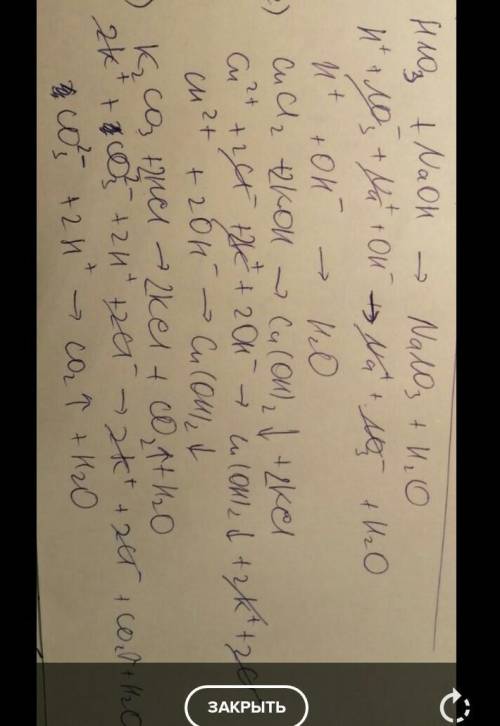 HNO3 + NaOH → NaNO3 + H2O
H⁺ + NO3⁻ + Na⁺ + OH⁻ → Na⁺ + NO3⁻ + H2O
H⁺ + OH⁻ → H2O
CuCl2 + 2KOH → Cu(OH)2↓ + 2KCl
Cu²⁺ + 2Cl⁻ + 2K⁺ + 2OH⁻ → Cu(OH)2↓ + 2K⁺ + 2Cl
Cu²⁺ + 2OH⁻ → Cu(OH)2↓
K2CO3 + 2HCl → 2KCl + CO2↑ + H2O
2K⁺ + CO3²⁻ + 2H⁺ + 2Cl⁻ → 2K⁺ + 2Cl⁻ + CO2↑ + H2O
CO3²⁻ + 2H⁺ → CO2↑ + H2O
ЗАКРЫТЬ